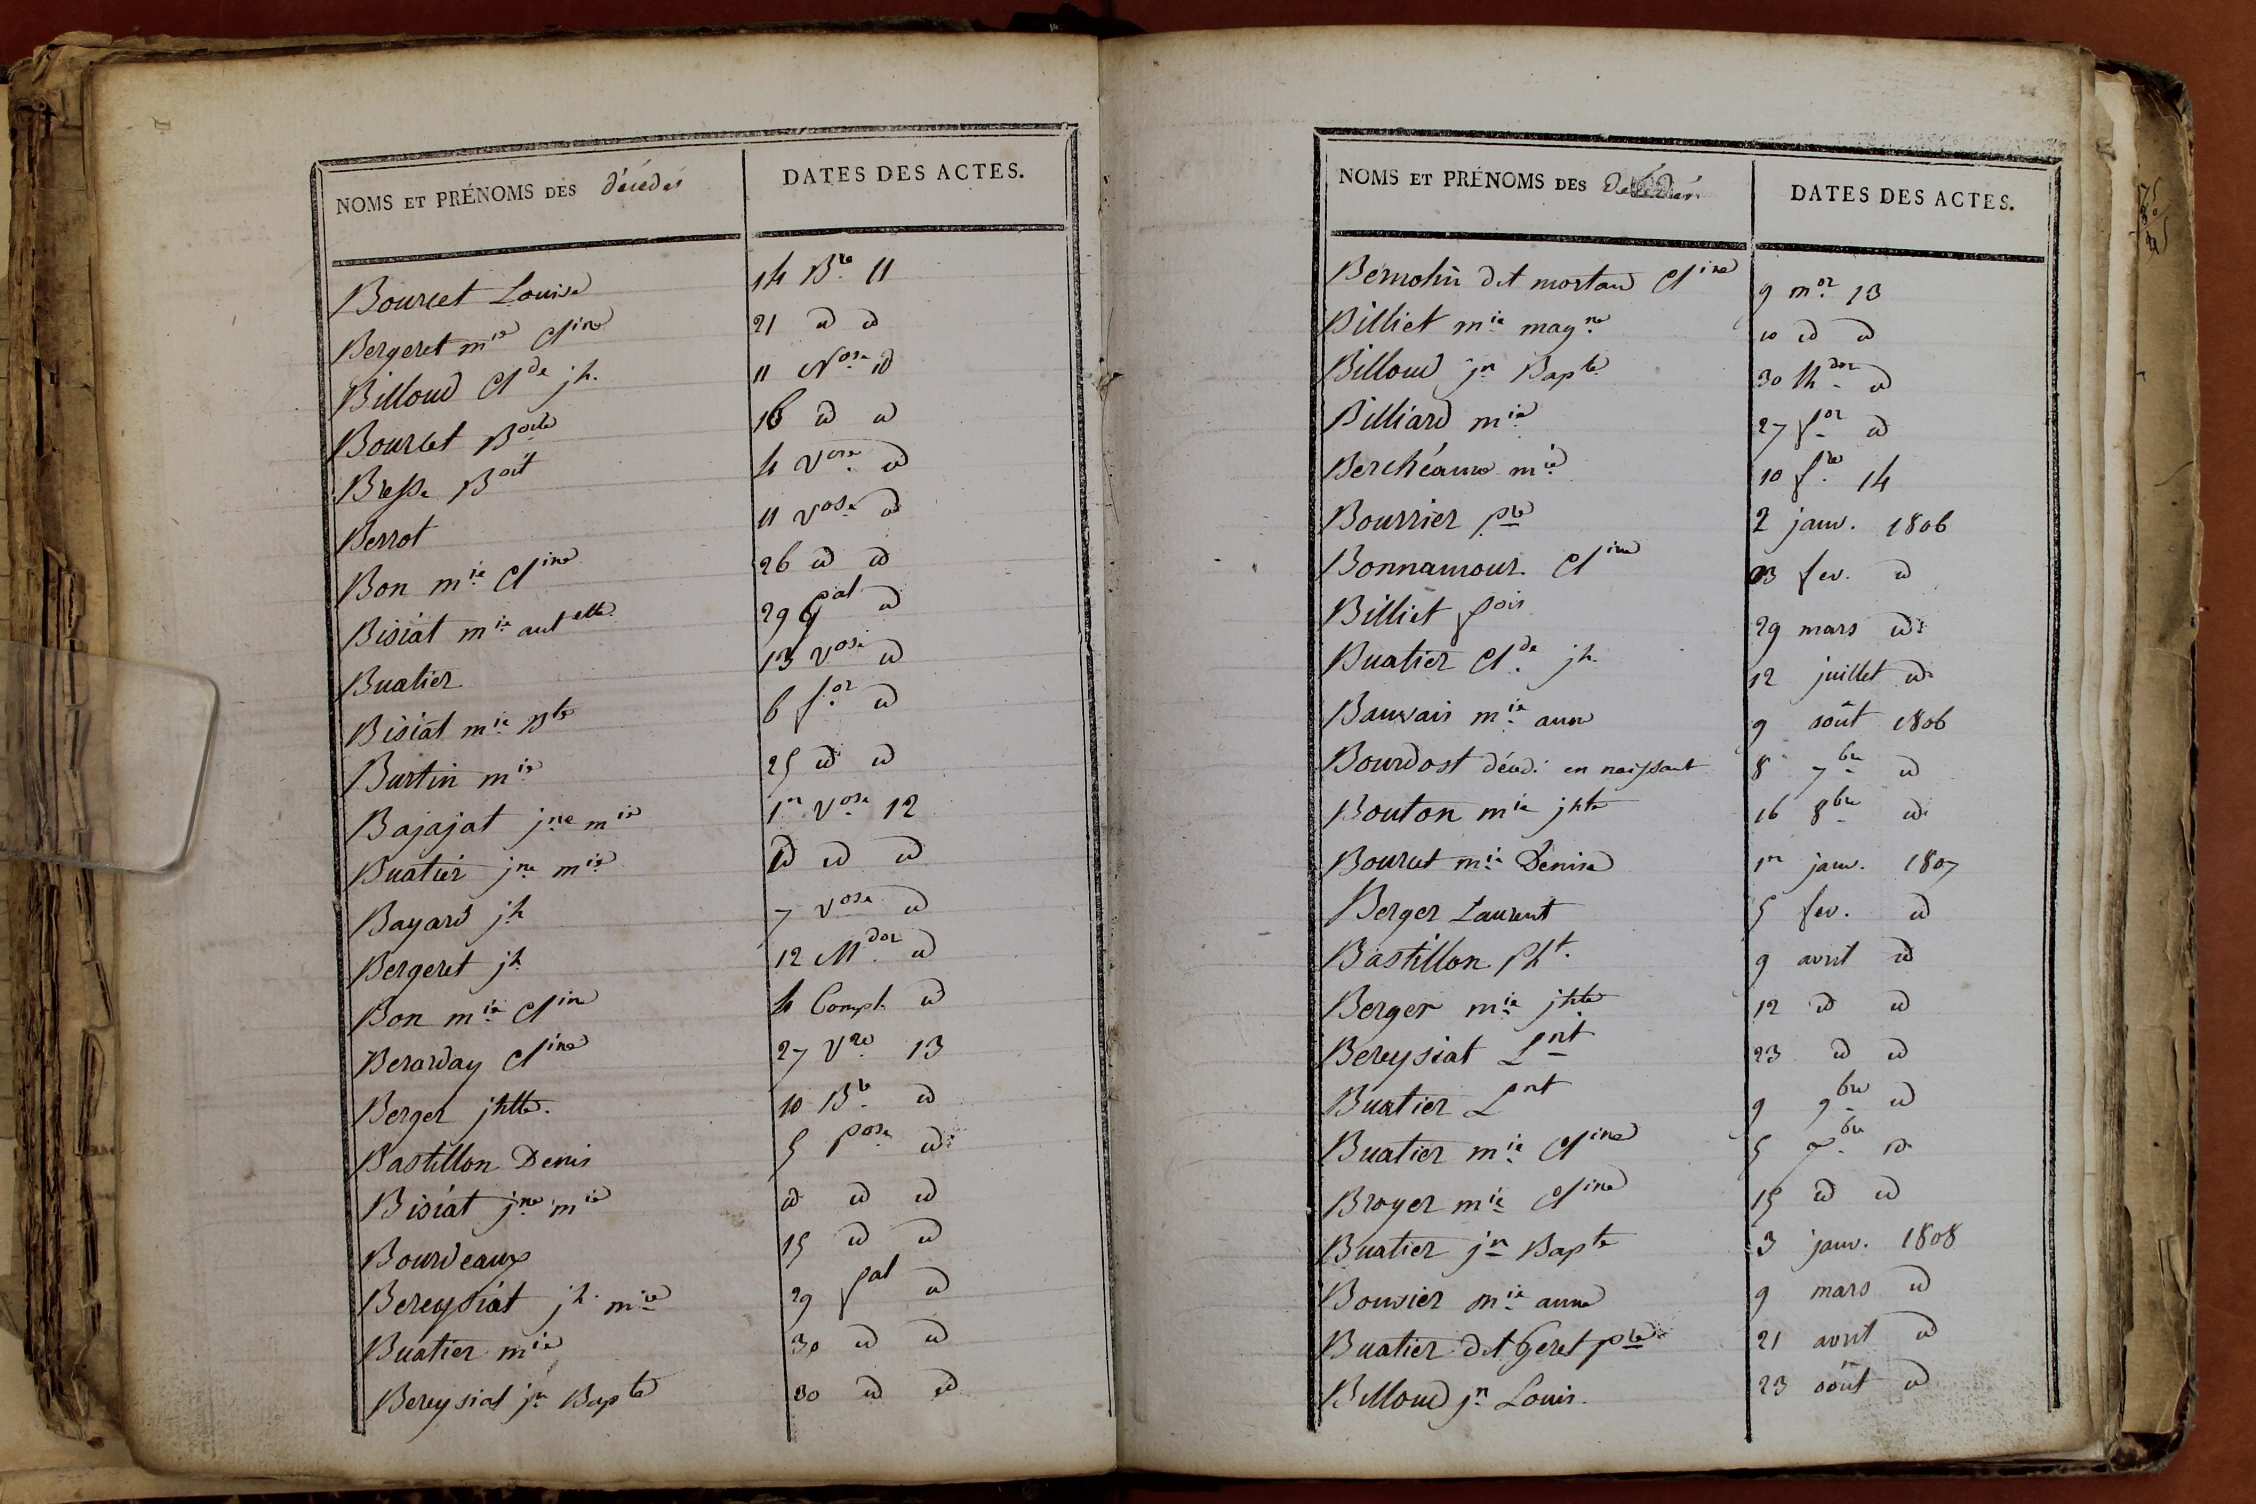 NOMS ET PRÉNOMS DES décédés DATES DES ACTES.
Bourcet Louise 14 Bre 11
Bergeret mie Cline 21 id id
Billoud Clde jh. 11 Nose id
Bourcet Boite 16 id id
Bresse Boit 4 Vose id
Berrot 11 Vose id
Bon mie Cline 26 id id
Bisiat mie antette 29 Gal id
Buatier 13 Vose id
Bisiat mie Bte 6 for id
Burtin mie 25 id id
Bajajat jne mie 1er Vose 12
Buatier jne mie id id id
Bayard jh 7 Vose id
Bergeret jh 12 Mdor id
Bon mie Cline 4 Compl. id
Berarday Cline 27 Vre 13
Berger jhtte. 10 Bre id
Bastillon Denis 5 pose id
Bisiat jne mie id id id
Bourdeaux 15 id id
Bereysiat jh. mie 29 fal id
Buatier mie 30 id id
Bereysiat jn Bapte 30 id id
NOMS ET PRÉNOMS DES DATES DES ACTES.
Bemolin dit mortand Cline 9 mor 13
Billiet mie magne 10 id id
Billoud jn Bapte 30 thdor id
Billiard mie 27 for id
Berchéaux mie 10 fre 14
Bourrier pre 2 janv. 1806
Bonnamour Cline 13 fev. id
Billiet fois 29 mars id
Buatier Clde jh. 12 juillet id
Bauvais mie anne 9 août 1806
Bourdost décdé en naissant 8 7bre id
Bouton mie jhte 16 8bre id
Bourcet mie Denise 1er janv. 1807
Berger Laurent 5 fev. id
Bastillon Pht. 9 avril id
Berger mie jhte 12 id id
Bereysiat Lnt 23 id id
Buatier Lnt 9 9bre id
Buatier mie Cline 5 Xbre id
Broyer mie Cline 15 id id
Buatier jn Bapte 3 janv. 1808
Bouvier mie anne 9 mars id
Buatier dit Geret pre 21 avril id
Billoud jn Louis. 23 août id